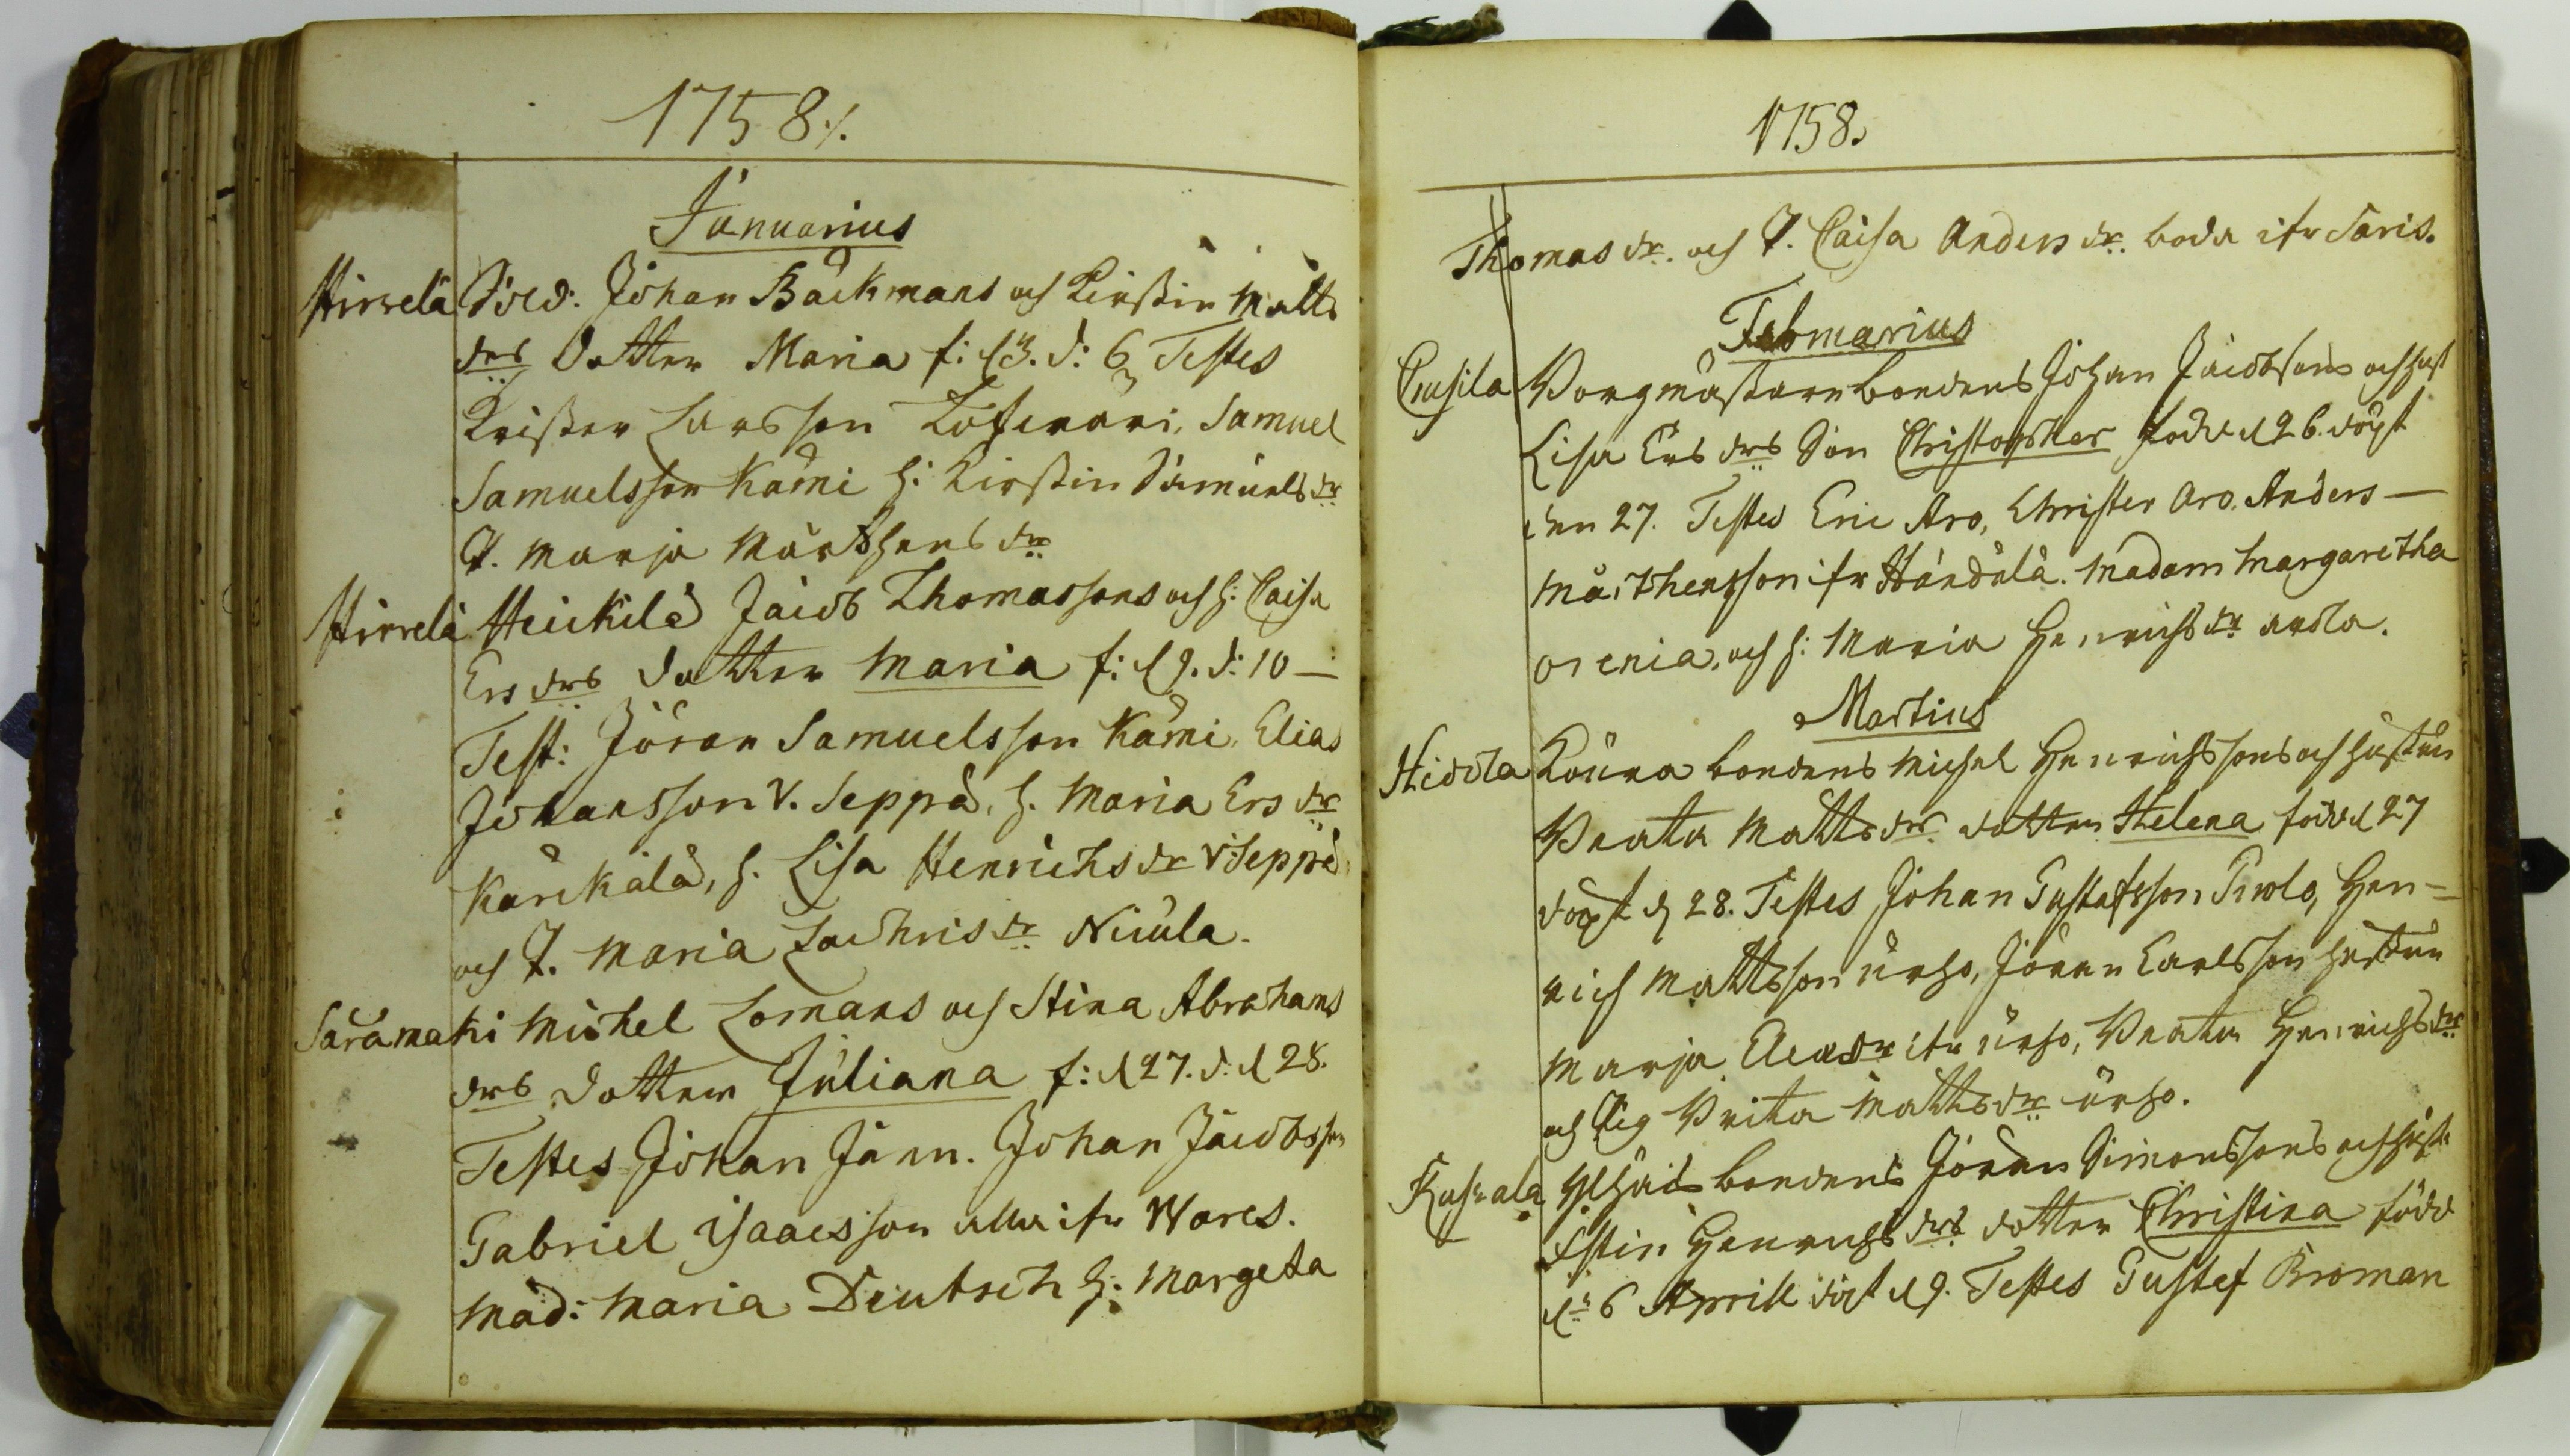 1758 ./.
Januarius
Hirvelä Sold: Johan Backmans och Kirstin Matts
drs Dotter Maria f: d 3. d: 6 Testes
Krister Larsson Samuel
Samuelsson Kämi h: Kirstin Samuels dr
P. Marja Mårthens dr
Hirvelä Heickilä Jacob Thomassons och h: Caisa
Ers drs dotter Maria f: d 9. d: 10 —
Test: Jöran Samuelsson Kämi, Elias
Johansson V. Seppä, h. Maria Ers dr
Kärckälä, h. Lisa Henrichs dr V Seppä
och P. Maria Zachris dr Nicula.
Säramäki Michel Lomans och Stina Abrahams
drs dotter Juliana f: d 27. d: d 28.
Testes Johan Jänn. Johan Jacobsson
Gabriel Isaacsson alla ifr Wares.
Mad: Maria Deutsch h: Margeta
1758.
Thomas dr. och P. Caisa Anders dr. boda ifr Saris.
Februarius
Borgmästare bondens Johan Jacobsons och hust
Lisa Ers drs Son Christopher född d 26. döpt
den 27. Testes Eric Aro, Christer Aro. Anders —
Mårthensson ifr Händälä. Madam Margaretha
och h: Maria Henrichs dr
Martius
bondens Michel Henrichssons och hustrun
Beata Matts drs dotter Helena född d 27
döpt d 28. Testes Johan Gustafsson Hen-
rich Mattsson Urho, Jöran Carlsson hustrun
Marja ifr Urho, Beata Henrichs dr
och Pig Brita Matts dr Urho.
bondens Jöran Simonssons och hust
Henrichs drs dotter Christina född
dn 6 Aprill döpt d 9. Testes Gustef Broman